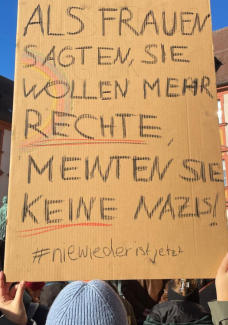 ALS FRAUEN
SAGTEN, SIE
WOLLEN MEHR
RECHTE,
MEINTEN SIE
KEINE NAZIS!
#niewiederistjetzt